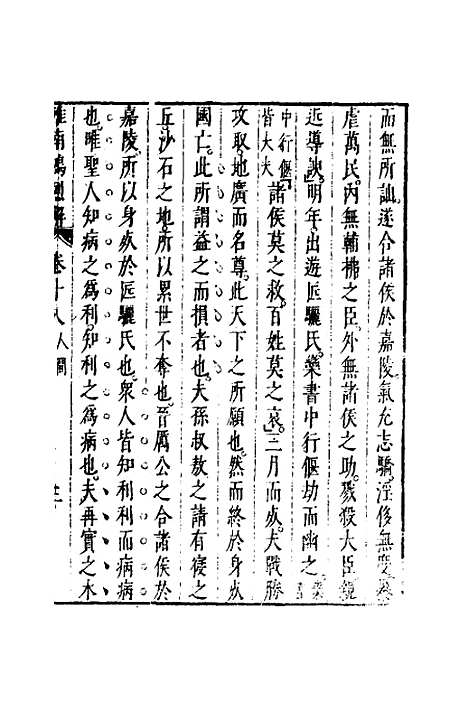 而無所詘遂合諸侯於嘉陵氣充志驕淫侈無度暴
虐萬民内無輔拂之臣外無諸侯之助戮殺大臣親
近導諛明年出遊匠驪氏欒書中行偃劫而幽之欒
中行偃皆大夫諸侯莫之救百姓莫之哀三月而死夫戰勝
攻取地廣而名尊此天下之所願也然而終於身死
國亡此所謂益之而損者也夫孫叔敖之請有寝之
丘沙石之地所以累世不奪也晋厲公之合諸侯於
嘉陵所以身死於匠驪氏也衆人皆知利利而病病
也唯聖人知病之爲利知利之爲病也夫再實之木
淮南鴻烈解 卷十八人間